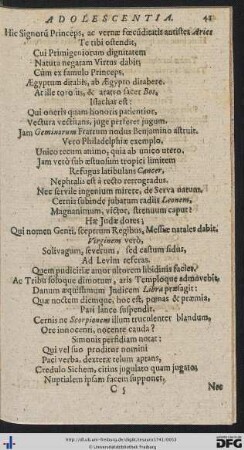 ADOLESCENTIA. 41
Hic Signorũ Princeps, ac vernæ fœcūditatis antistes Aries
Te tibi ostendit,
Cui Primigeniorum dignitatem
Natura negaram Virtus dabit;
Cùm ex famulo Princeps,
Ægyptum ditabis, ab Ægypto ditabere.
At ille torosus, & aratro facer Bos,
Isachar est:
Qui oneris quam honoris patientior,
Vectura vectitans, juge perferet jugum.
Jam Geminorum Fratrum nodus Benjamino astruit.
Vero Philadelphiæ exemplo,
Unico tecum animo, quia ab unico utero.
Jam verò sub æstuosum tropici limitem
Refogus latibulans Cancer,
Nephtali est à recto retrogradus.
Nec servile ingenium mirere, de Serva natum.
Cernis subinde jubatum radiis Leonem,
Magnanimum, victor, strenuum caput:
Hic Judæ domus;
Qui nomen Genti, sceptrum Regibus, Messiæ natales dabit.
Virginem verò,
Solivagum, severum, sed castum sidus,
Ad Levim referas.
Quem pudicitiæ amor ultorem libidinis faciet.
Ac Tribu soloque dimotum, aris Temploque admovebit.
Danum æquissimum Judicem Libra præsagit:
Quæ noctem diemque, hoc est, pœnas & præmia,
Pari lance suspendit.
Cernis ne Scorpionem illum truculenter blandum,
Ore innocenti, nocente cauda?
Simonis perfidiam notat:
Qui vel suo proditur nomini
Paci verba, dexteræ telum aptans,
Credulo Sichem, citius jugulato quam jugato,
Nuptialem ipsam facem supponet,
C 5 Nec
http://dl.ub.uni-freiburg.de/diglit/tesauro1741/0053
© Universitätsbibliothek Freiburg